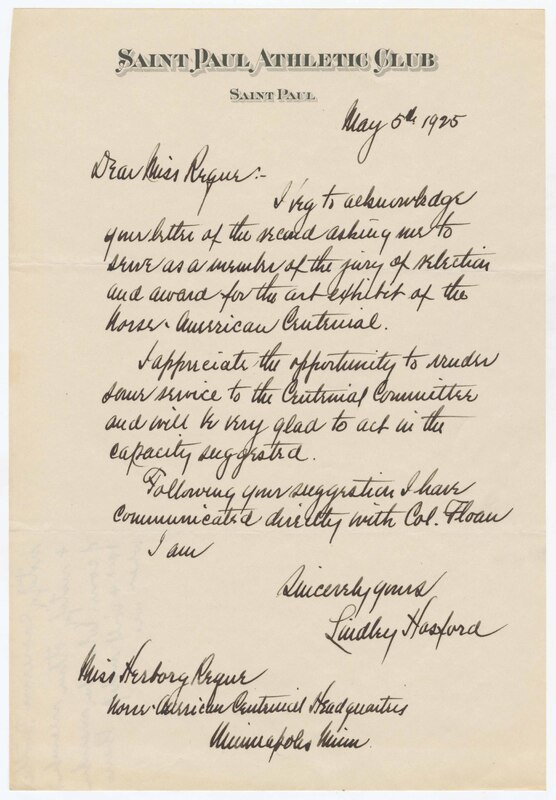 SAINT PAUL ATHLETIC CLUB
SAINT PAUL
May 5th 1925
Dear Miss Reque:-
I beg to acknowledge
your letter of the second asking me to
serve as a member of the jury of selection
and award for the art exhibit of the
Norse-American Centennial.
I appreciate the opportunity to render
some service to the Centennial Committee
and will be very glad to act in the
capacity suggested.
Following your suggestion I have
communicated directly with Col. Floan
I am
Sincerely yours
Lindley Hosford
Miss Herborg Reque
Norse-American Centennial Headquarters
Minneapolis Minn.